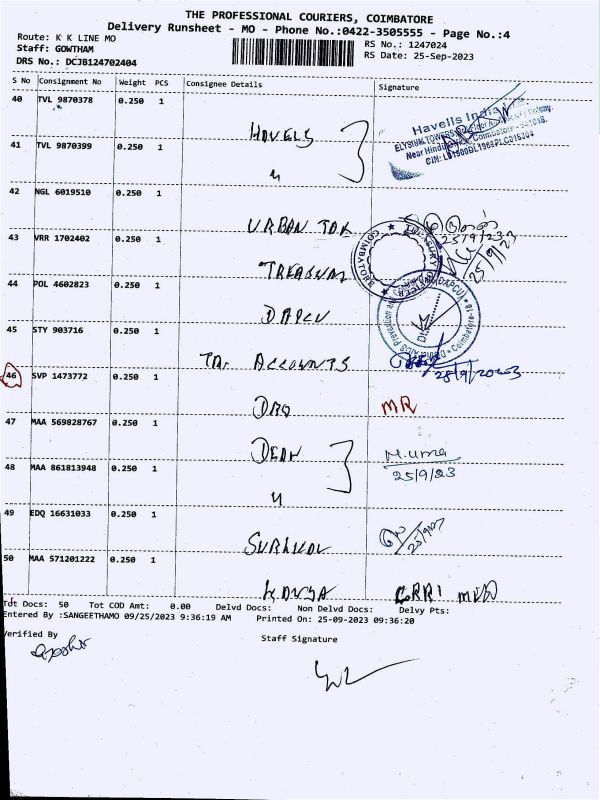 THE PROFESSIONAL COURIERS, COIMBATORE
Delivery Runsheet - MO - Phone No.:0422-3505555 - Page No.:4
Route: K K LINE MO
RS No.: 1247024
Staff: GOWTHAM
RS Date: 25-Sep-2023
DRS No.: DCJB124702404
S No Consignment No Weight PCS Consignee Details Signature
40 TVL 9870378 0.250 1
HAVELS
Havells India
41 TVL 9870399 0.250 1
〃
42 NGL 6019510 0.250 1
URBAN
25/9/23
43 VRR 1702402 0.250 1
TREASURY
25/9/23
44 POL 4602823 0.250 1
DAPCU
45 STY 903716 0.250 1
ACCOUNTS
25/9/2023
46 SVP 1473772 0.250 1
DRO
MR
47 MAA 569828767 0.250 1
DEAN
M.uma
25/9/23
48 MAA 861813948 0.250 1
〃
49 EDQ 16631033 0.250 1
50 MAA 571201222 0.250 1
Tot Docs: 50 Tot COD Amt: 0.00 Delvd Docs: Non Delvd Docs: Delvy Pts:
Entered By :SANGEETHAMO 09/25/2023 9:36:19 AM Printed On: 25-09-2023 09:36:20
Verified By Staff Signature